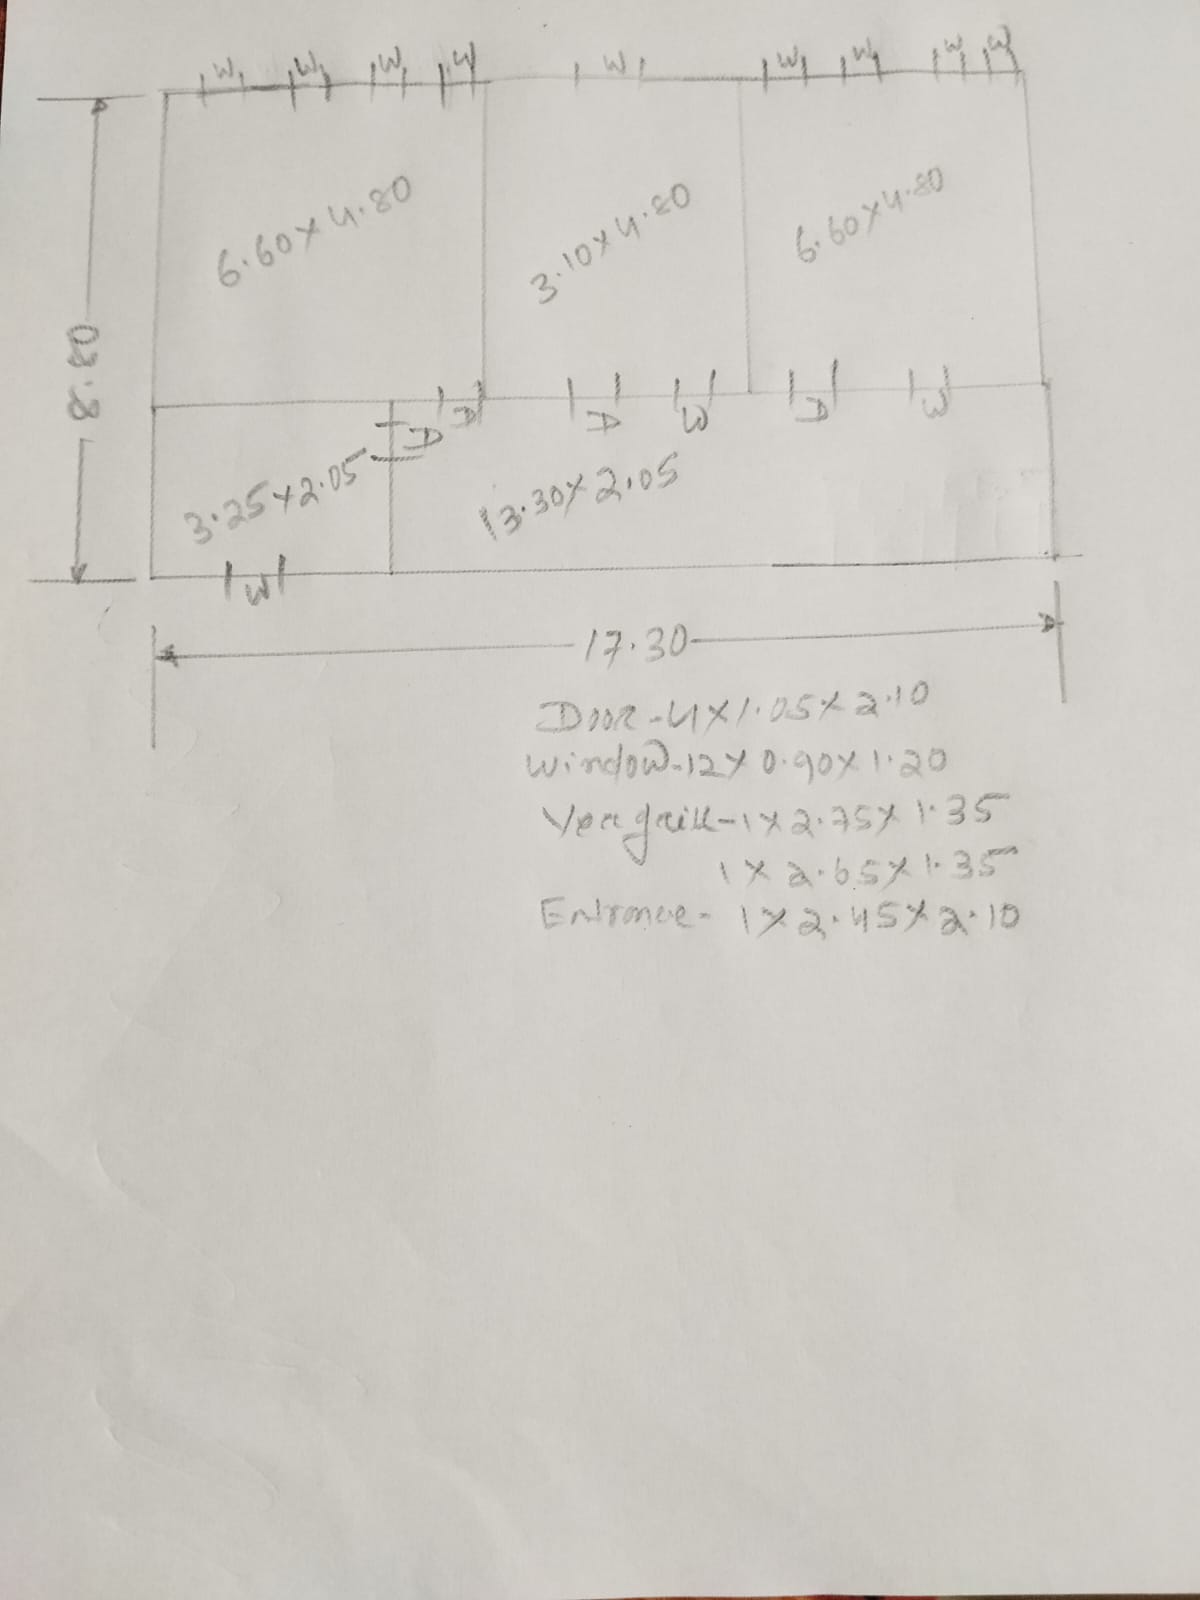 W W W W W W W W W
6.60 x 4.80 3.10 x 4.80 6.60 x 4.80
8.80
D D W D W
D
3.25 x 2.05 13.30 x 2.05
W
17.30
Door - 4 x 1.05 x 2.10
Window - 12 x 0.90 x 1.20
Ver grill - 1 x 2.75 x 1.35
1 x 2.65 x 1.35
Entrance - 1 x 2.45 x 2.10